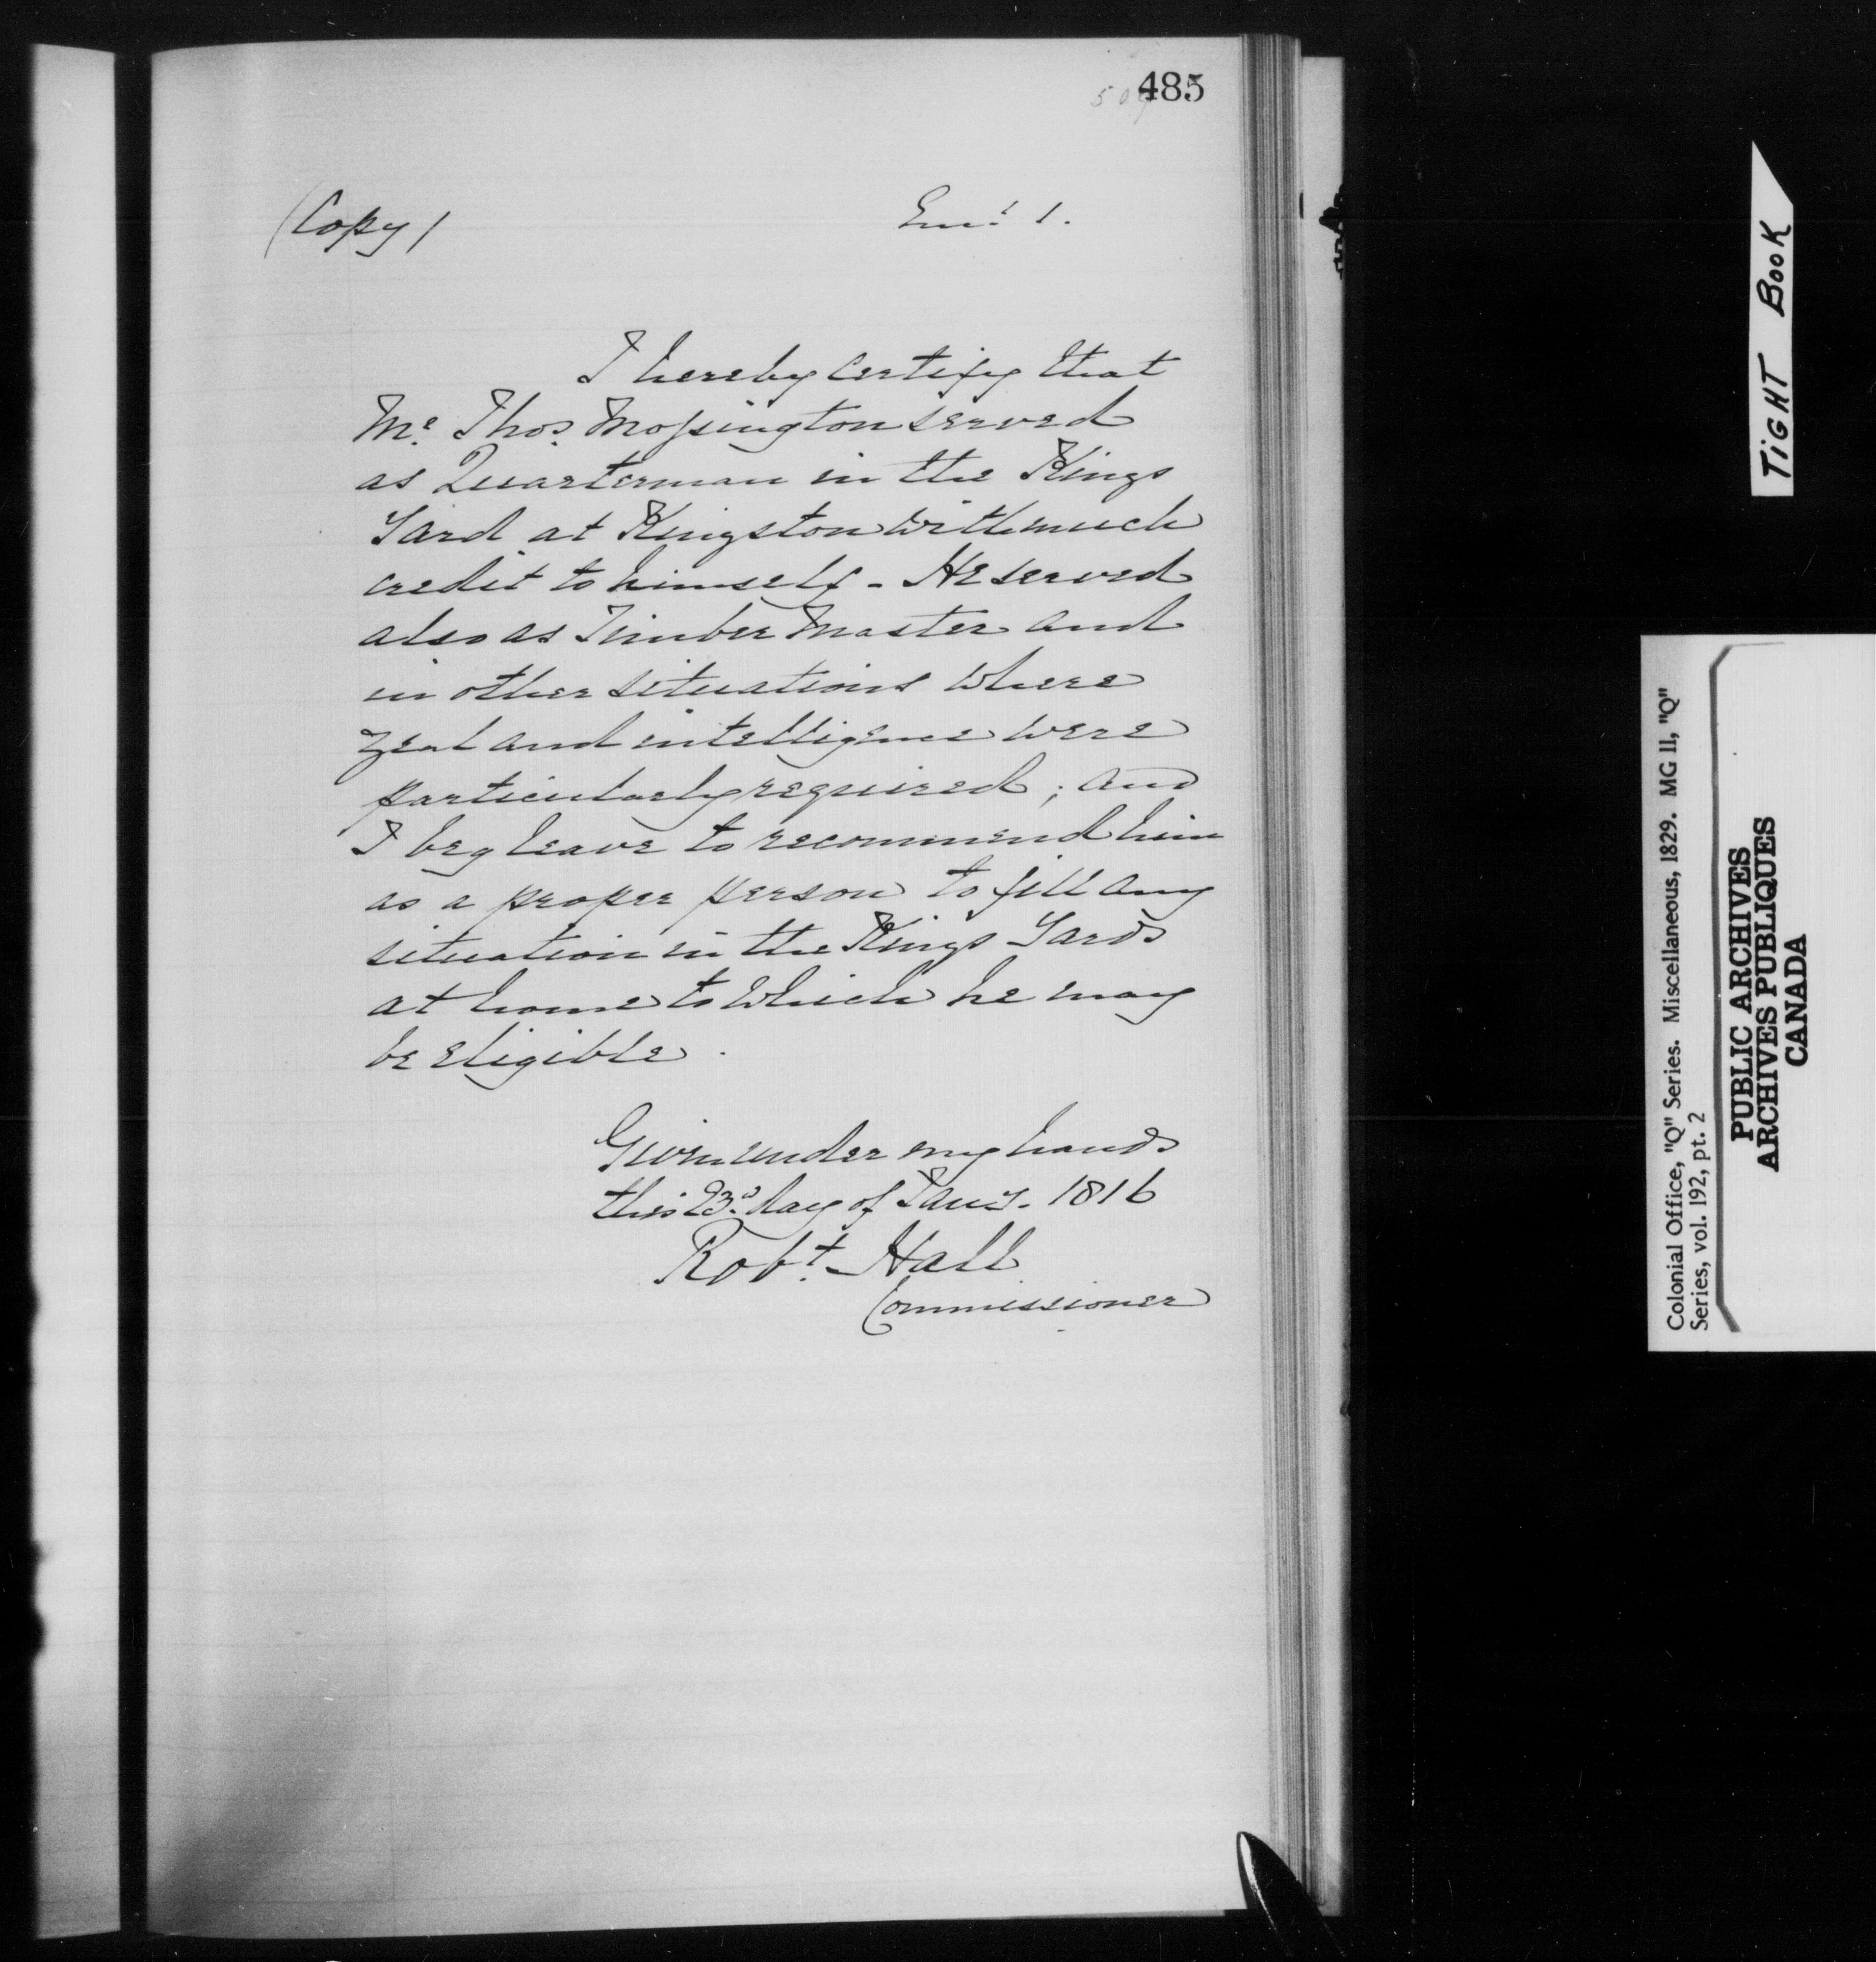 485
(Copy)
Enc. 1.
I hereby certify that
Mr. Thos. Mossington served
as Quarterman in the Kings
Yard at Kingston with much
credit to himself - He served
also as Timber Master and
in other situations where
zeal and intelligence were
particularly required; and
I beg leave to recommend him
as a proper person to fill any
situation in the Kings Yards
at home to which he may
be eligible.
Given under my hand
this 23d. day of Jany. 1816
Robt. Hall
Commissioner
TIGHT BOOK
Colonial Office, "Q" Series. Miscellaneous, 1829. MG 11, "Q"
Series, vol. 192, pt. 2
PUBLIC ARCHIVES
ARCHIVES PUBLIQUES
CANADA